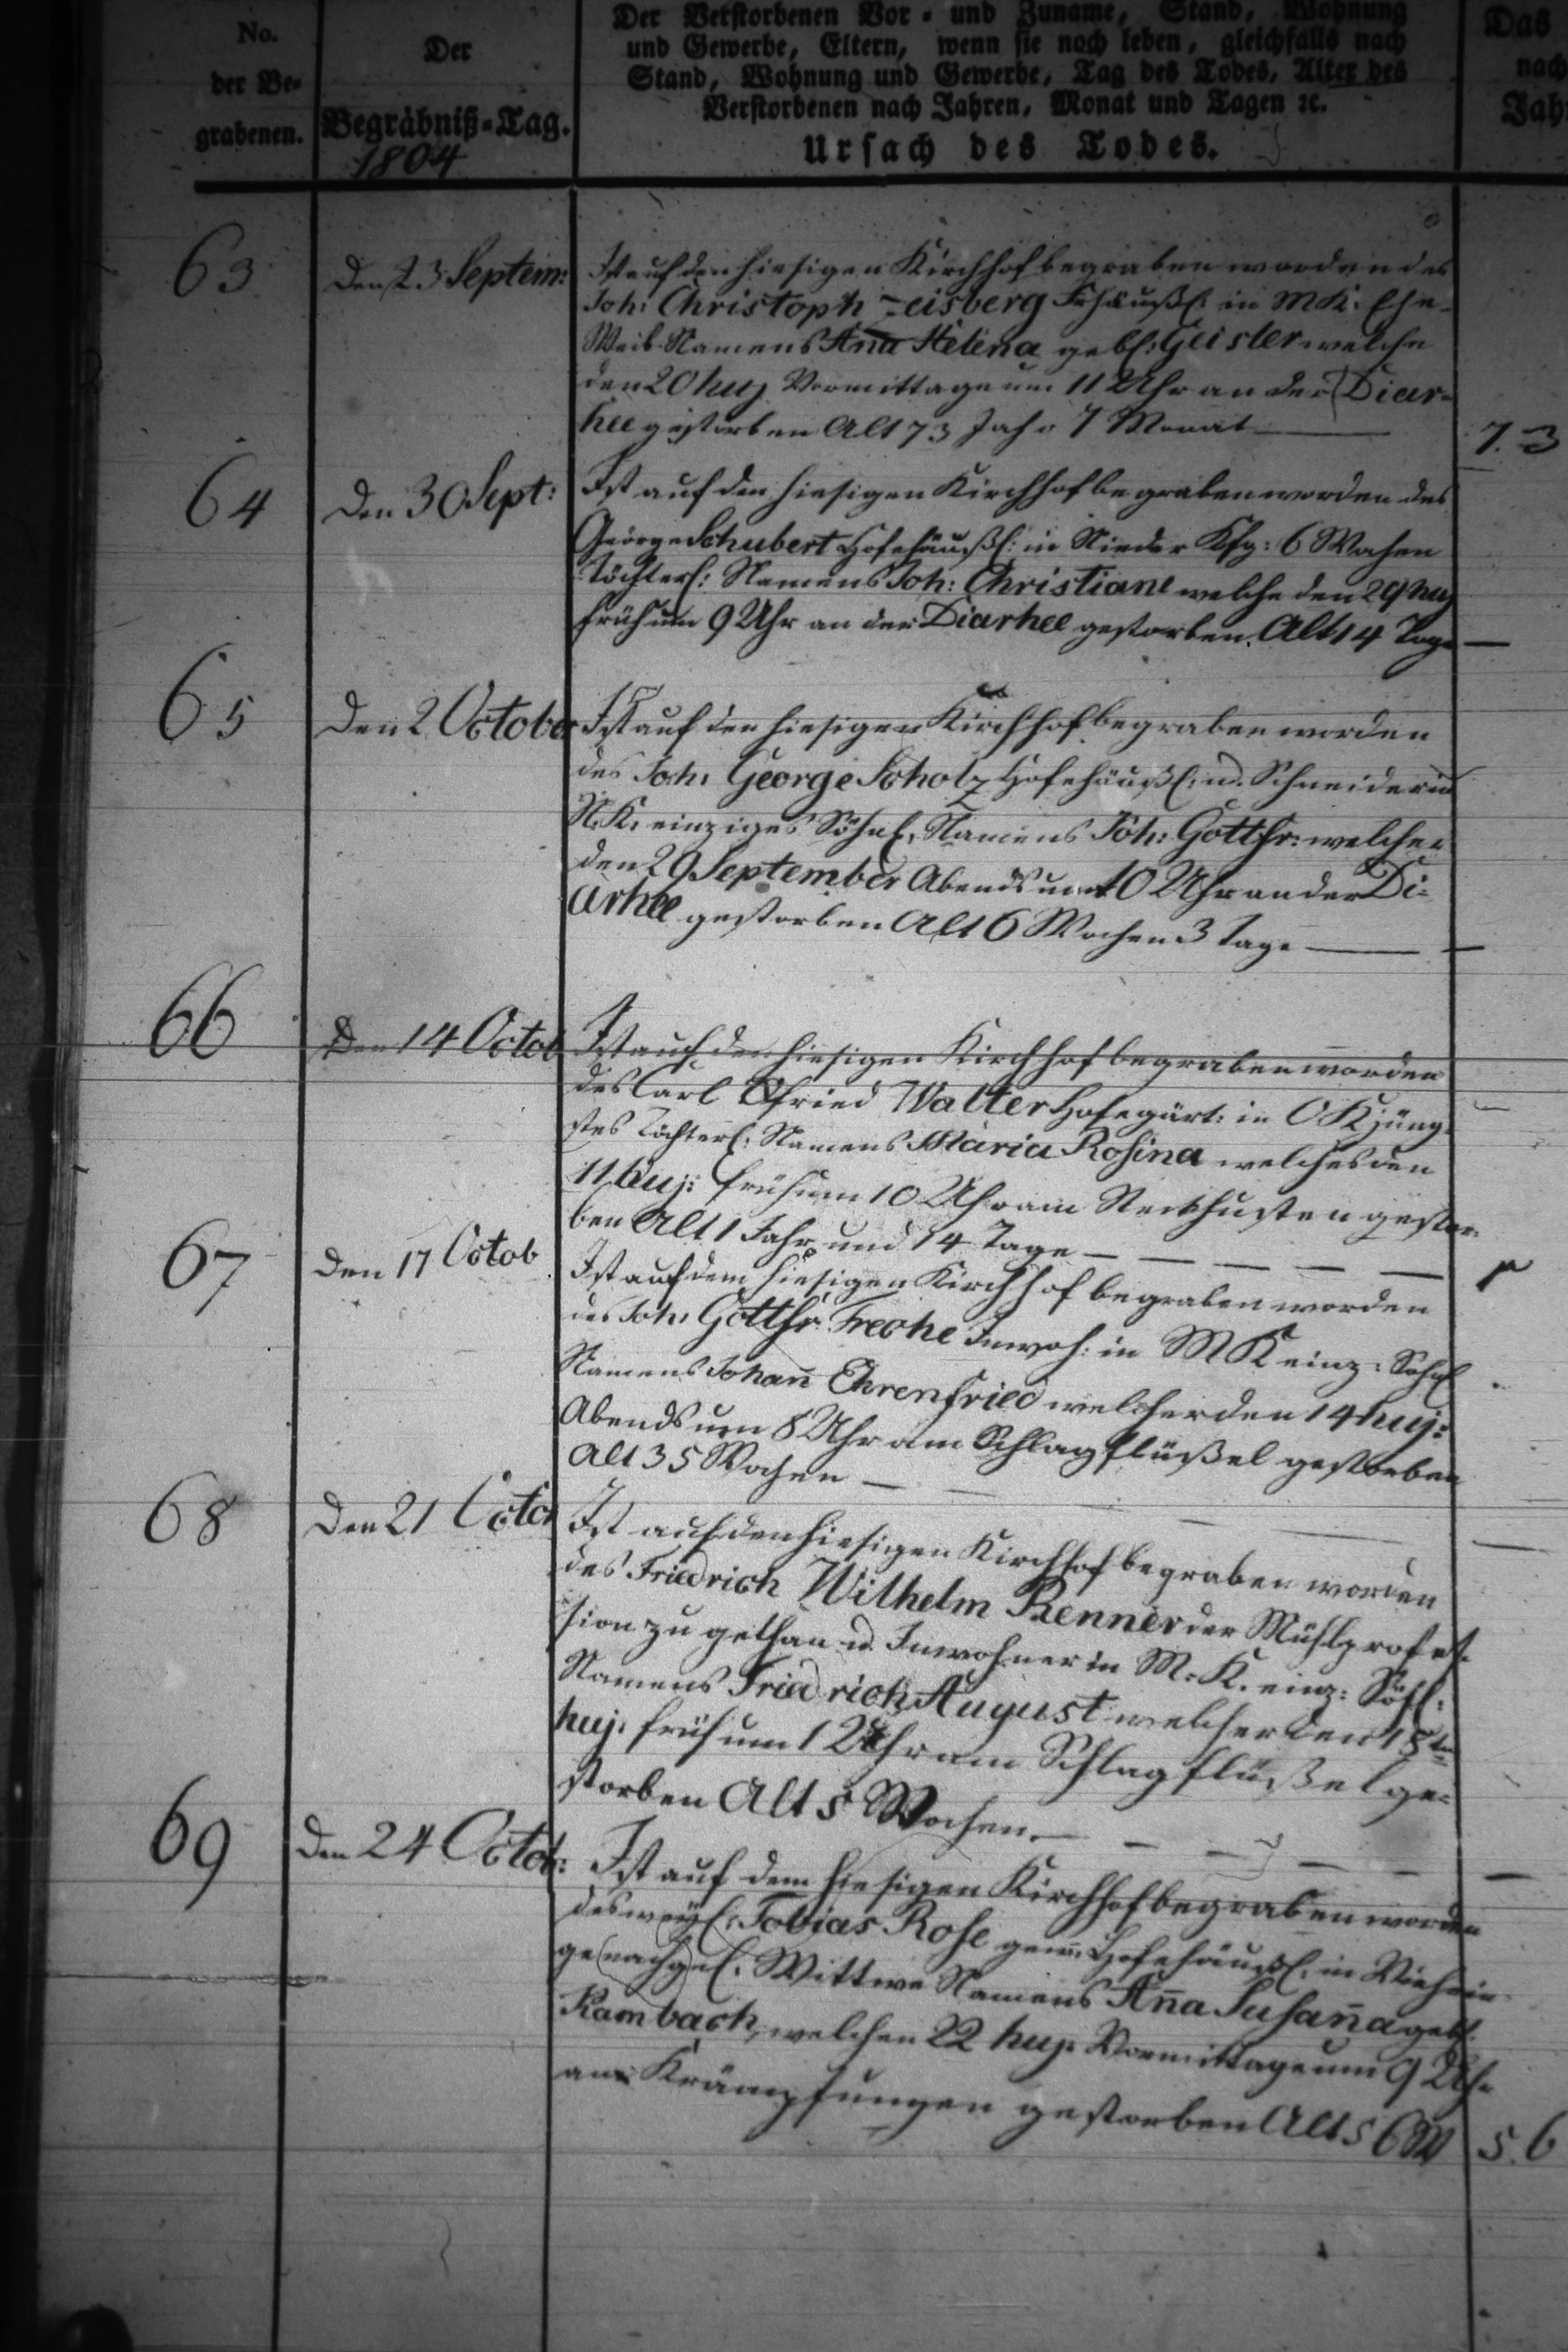 No.
der Be-
grabenen.
Der
Begräbniß-Tag.
1804
Der Verstorbenen Vor- und Zuname, Stand, Wohnung
und Gewerbe, Eltern, wenn sie noch leben, gleichfalls nach
Stand, Wohnung und Gewerbe, Tag des Todes, Alter des
Verstorbenen nach Jahren, Monat und Tagen ꝛc.
Ursach des Todes.
Das
nach
Jah
63
Den 23 Septem:
Ist auf den hiesigen Kirchhof begraben worden des
Joh: Christoph Zeisberg Frhäußl: in M K: Ehe-
Weib Namens Aña Helena gebl: Geisler welche
den 20 huj Vormittage um 11 Uhr an der Diar-
hee gestorben Alt 73 Jahr 7 Monat
7. 3
64
Den 30 Sept:
Ist auf den hiesigen Kirchhof begraben worden des
George Schubert Hofehäußl: in Nieder Kſg: 6 Wochen
Töchterl: Namens Joh: Christiane welche den 29 huj
früh um 9 Uhr an der Diarhee gestorben. Alt 14 Tage
65
Den 2 October
Ist auf den hiesigen Kirchhof begraben worden
des Joh: George Scholz Hofehäußl: u. Schneider in
N. K. einziges Söhnl. Namens Joh: Gottfr: welcher
den 29 September Abends um 10 Uhr an der Di-
arhee gestorben Alt 6 Wochen 3 Tage
66
Den 14 Octob
Ist auf den hiesigen Kirchhof begraben worden
des Carl Gfried Walter Hofegärt: in O K jüng-
stes Töchterl: Namens Maria Rosina welches den
11 huj: früh um 10 Uhr am Steckhusten gestor-
ben Alt 1 Jahr und 14 Tage
67
Den 17 Octob
Ist auf dem hiesigen Kirchhof begraben worden
des Joh: Gottfr: Freche Inwoh: in M K einz: Söhnl
Namens Johañ Ehrenfried welcher den 14 huj:
Abends um 8 Uhr am Schlagflüßel gestorben
Alt 35 Wochen
68
Den 21 Octob
Ist auf den hiesigen Kirchhof begraben worden
des Friedrich Wilhelm Renner der Mühlprofes-
sion zu gethan u. Inwohner in M. K. einz: Söhl:
Namens Friedrich August welcher den 18ten
huj. früh um 1 Uhr am Schlagflüßel ge-
storben Alt 5 Wochen.
69
Den 24 Octob:
Ist auf dem hiesigen Kirchhof begraben worden
des weyl: Tobias Rose gew: Hofehäußl: in
ge nachgel. Wittwe Namens Aña Susaña gebl.
Rambach, welche den 22 huj. Vormittage um 9 Uhr
an Krämpfungen gestorben Alt 56
5. 6